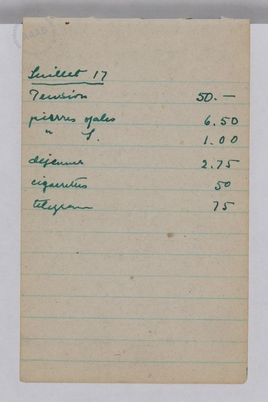 Juillet 17
Pension 50.—
pierres opales 6.50
" 1.00
déjeuner 2.75
cigarettes 50
telegram 75